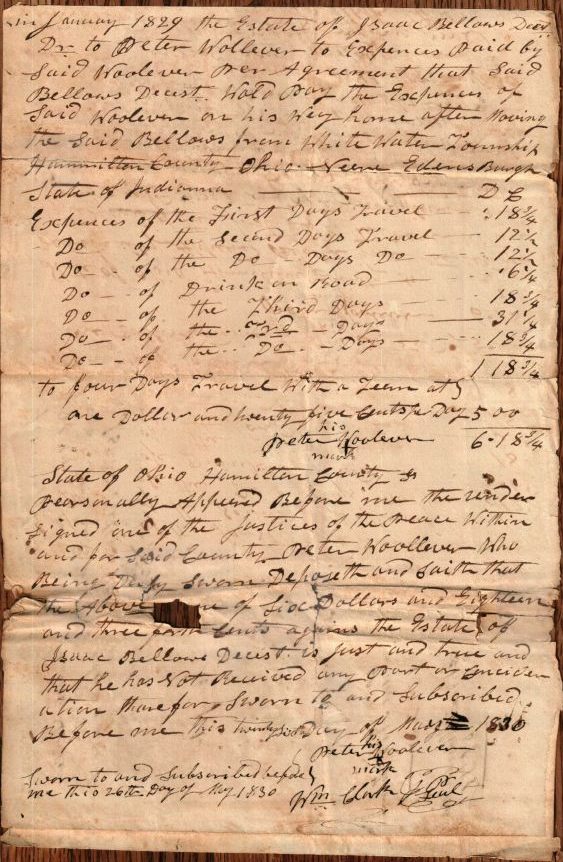 in January 1829 the Estate of Isaac Bellows Decst
Dr to Peter Wollever to Expences Paid by
Said Woolever Per Agreement that Said
Bellows Decest. Wold Pay the Expences of
Said Woolever on his Wey home after Moving
the Said Bellows from White Water Township
Hammilton County Ohio Neere Edens Burgh
State of Indianna D C
Expences of the First Days Travel 18 3/4
Do of the Second Days Travel 12 1/2
Do of the Do Days Do 12 1/2
Do of Drink on Road 6 1/4
Do of the Third Days 18 3/4
Do of the 3rd Days 31 1/4
Do of the Do Days 18 3/4
1 18 3/4
to four Days Travel With a Teem at
one Dollar and twenty five Cents pr Day 5 00
his
Peter Woolever 6 18 3/4
mark
State of Ohio Hamilton County
Pearsonally Appeered Before me the under
Signed one of the Justices of the Peace Within
and for Said County Peter Woollever Who
Being Duly Sworn Deposeth and Saith that
the Above of Six Dollars and Eighteen
and three forth Cents against the Estate of
Isaac Bellows Decest is Just and true and
that he has Not Recived any Part or Concider
ation thare for Sworn to and Subscribed
Before me this twenty six Day of May 1830
his
Peter Woolever
mark
Sworn to and Subscribed before
me this 26th Day of May 1830
Wm Clark J Peace